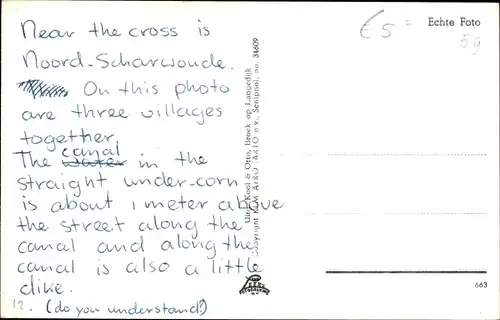 Near the cross is
Noord-Scharwoude.
On this photo
are three villages
together.
The canal in the
straight under-corn
is about 1 meter above
the street along the
canal and along the
canal is also a little
dike.
12. (do you understand?)
Uitg. Kool & Otto, Broek op Langedijk
Copyright KLM AERO CARTO n.v., Schiphol, no. 34609
Echte Foto
€5=
59
663